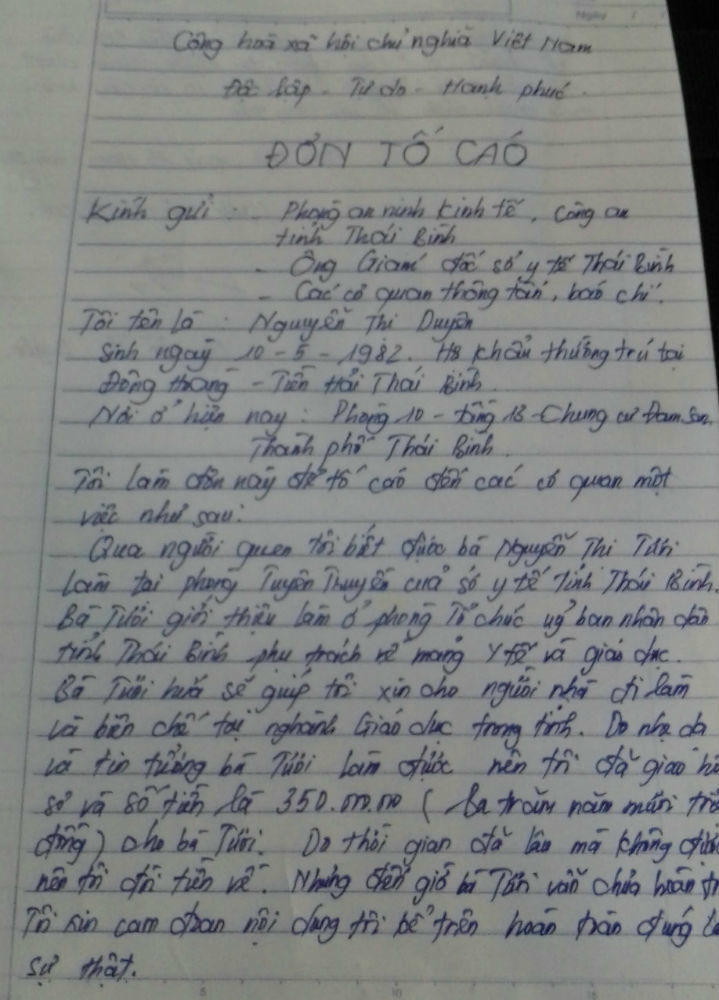 Cộng hoà xã hội chủ nghĩa Việt Nam
Độc lập - Tự do - Hạnh phúc.
ĐƠN TỐ CÁO
Kính gửi : - Phòng an ninh kinh tế, công an
tỉnh Thái Bình
- Ông Giám đốc sở y tế Thái Bình
- Các cơ quan thông tấn, báo chí.
Tôi tên là : Nguyễn Thị Duyên
Sinh ngày 10 - 5 - 1982. Hộ khẩu thường trú tại
Đông Hoàng - Tiền Hải Thái Bình.
Nơi ở hiện nay : Phòng 10 - tầng 18 - Chung cư Đam San,
Thành phố Thái Bình.
Tôi làm đơn này để tố cáo đến các cơ quan một
việc như sau:
Qua người quen tôi biết được bà Nguyễn Thị Tươi
làm tại phòng Tuyên Truyền của sở y tế tỉnh Thái Bình.
Bà Tươi giới thiệu làm ở phòng Tổ chức uỷ ban nhân dân
tỉnh Thái Bình phụ trách về mảng Y tế và giáo dục.
Bà Tươi hứa sẽ giúp tôi xin cho người nhà đi làm
và biên chế tại nghành Giáo dục trong tỉnh. Do nhẹ dạ
và tin tưởng bà Tươi làm được nên tôi đã giao hồ
sơ và số tiền là 350.000.000 ( Ba trăm năm mươi
đồng) cho bà Tươi. Do thời gian đã lâu mà không được
nên tôi đòi tiền về. Nhưng đến giờ bà Tươi vẫn chưa hoàn
Tôi xin cam đoan nội dung tôi kể trên hoàn toàn đúng
sự thật.